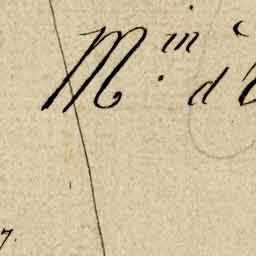 M.in d'
7.